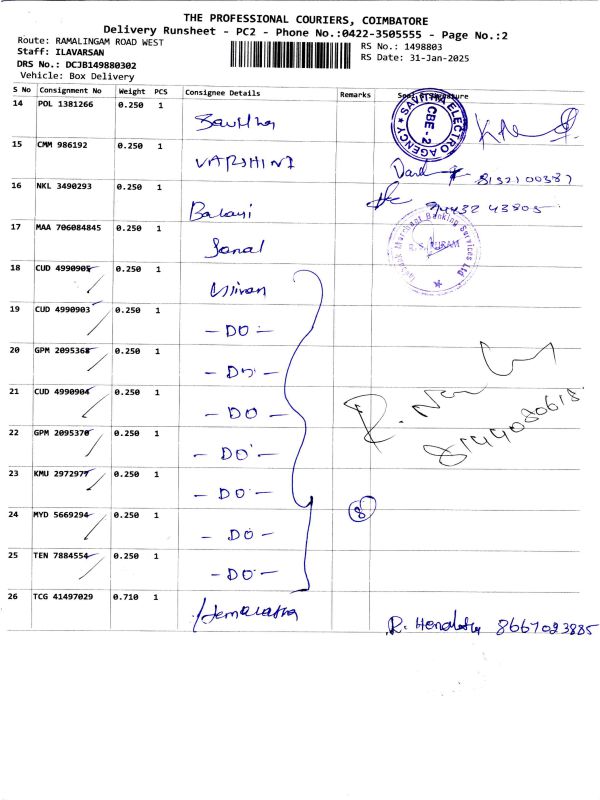 THE PROFESSIONAL COURIERS, COIMBATORE
Delivery Runsheet - PC2 - Phone No.:0422-3505555 - Page No.:2
Route: RAMALINGAM ROAD WEST
RS No.: 1498803
Staff: ILAVARSAN
RS Date: 31-Jan-2025
DRS No.: DCJB149880302
Vehicle: Box Delivery
S No Consignment No Weight PCS Consignee Details Remarks Seal & Signature
14 POL 1381266 0.250 1
SAVITHA ELECTRO AGENCY
CBE - 2
15 CMM 986192 0.250 1 VARSHINI
16 NKL 3490293 0.250 1 Balaji
94432 43905
17 MAA 706084845 0.250 1 Sanal
Merchant Banking Services Ltd
18 CUD 4990905 0.250 1
19 CUD 4990903 0.250 1 - DO -
20 GPM 2095368 0.250 1 - DO -
21 CUD 4990904 0.250 1 - DO -
8144080618
22 GPM 2095370 0.250 1 - DO -
23 KMU 2972977 0.250 1 - DO -
8
24 MYD 5669294 0.250 1 - DO -
25 TEN 7884554 0.250 1 - DO -
26 TCG 41497029 0.710 1 Hemalatha
R. Hemalatha 8667023885